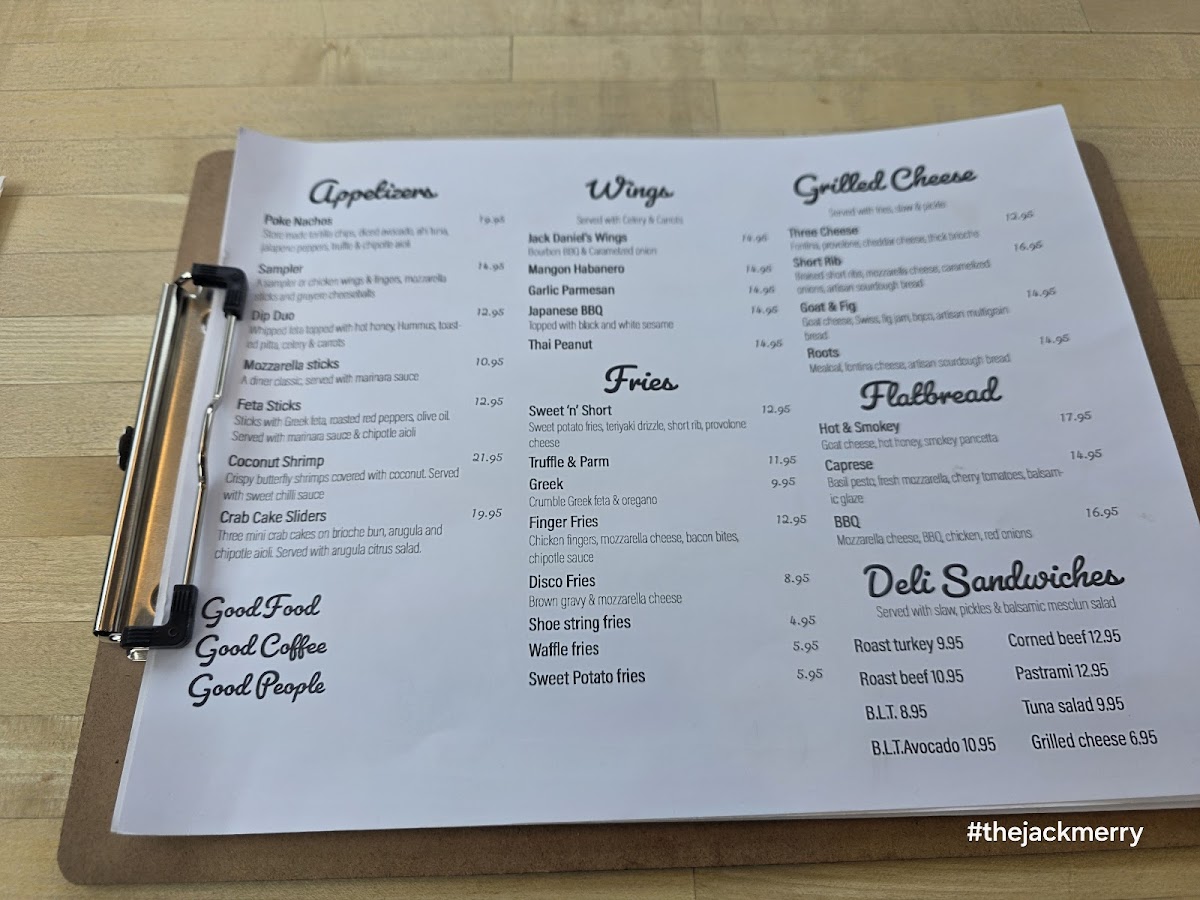 Appetizers
Poke Nachos
Store made tortilla chips, diced avocado, ahi tuna,
jalapeno peppers, truffle & chipotle aioli
Sampler 14.95
A sampler of chicken wings & fingers, mozzarella
sticks and gruyere cheeseballs
Dip Duo 12.95
Whipped feta topped with hot honey, Hummus, toast-
ed pitta, celery & carrots
Mozzarella sticks 10.95
A diner classic, served with marinara sauce
Feta Sticks 12.95
Sticks with Greek feta, roasted red peppers, olive oil.
Served with marinara sauce & chipotle aioli
Coconut Shrimp 21.95
Crispy butterfly shrimps covered with coconut. Served
with sweet chilli sauce
Crab Cake Sliders 19.95
Three mini crab cakes on brioche bun, arugula and
chipotle aioli. Served with arugula citrus salad.
Good Food
Good Coffee
Good People
Wings
Served with Celery & Carrots
Jack Daniel's Wings 14.95
Bourbon BBQ & Caramelized onion
Mangon Habanero 14.95
Garlic Parmesan 14.95
Japanese BBQ 14.95
Topped with black and white sesame
Thai Peanut 14.95
Fries
Sweet 'n' Short 12.95
Sweet potato fries, teriyaki drizzle, short rib, provolone
cheese
Truffle & Parm 11.95
Greek 9.95
Crumble Greek feta & oregano
Finger Fries 12.95
Chicken fingers, mozzarella cheese, bacon bites,
chipotle sauce
Disco Fries 8.95
Brown gravy & mozzarella cheese
Shoe string fries 4.95
Waffle fries 5.95
Sweet Potato fries 5.95
Grilled Cheese
Served with fries, slaw & pickle
Three Cheese 12.95
Fontina, provolone, cheddar cheese, thick brioche
Short Rib 16.95
Braised short ribs, mozzarella cheese, caramelized
onions, artisan sourdough bread
Goat & Fig 14.95
Goat cheese, Swiss, fig jam, artisan multigrain
bread
Roots 14.95
fontina cheese, artisan sourdough bread
Flatbread
Hot & Smokey 17.95
Goat cheese, hot honey, smokey pancetta
Caprese 14.95
Basil pesto, fresh mozzarella, cherry tomatoes, balsam-
ic glaze
BBQ 16.95
Mozzarella cheese, BBQ, chicken, red onions
Deli Sandwiches
Served with slaw, pickles & balsamic mesclun salad
Roast turkey 9.95 Corned beef 12.95
Roast beef 10.95 Pastrami 12.95
B.L.T. 8.95 Tuna salad 9.95
B.L.T.Avocado 10.95 Grilled cheese 6.95
#thejackmerry